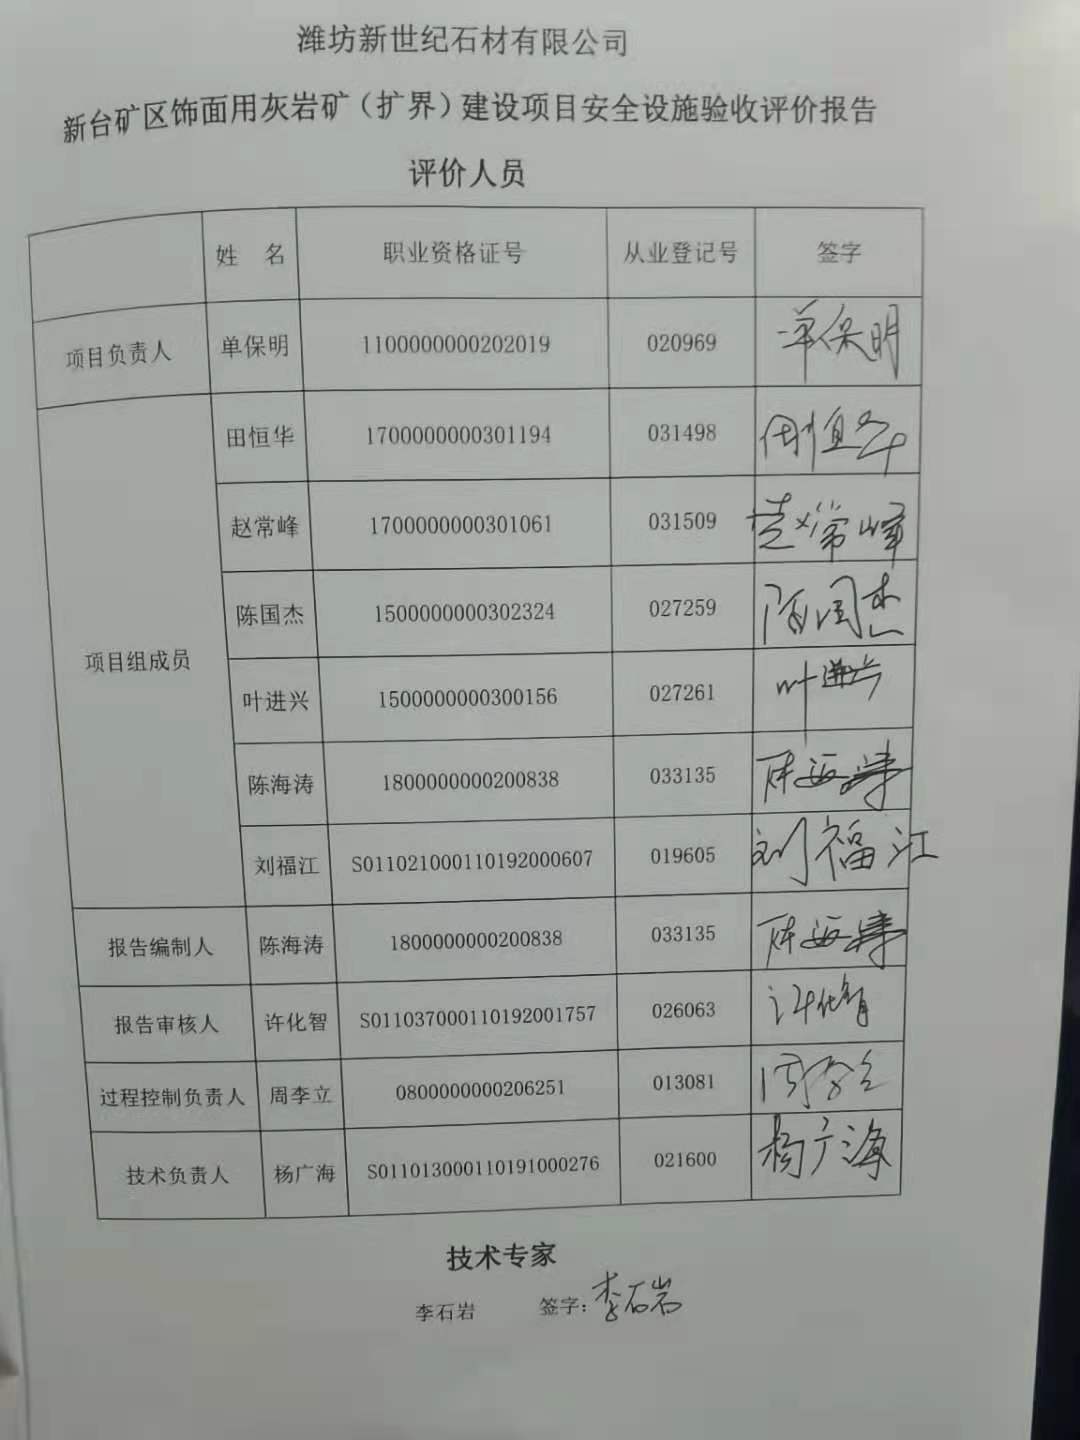 潍坊新世纪石材有限公司
新台矿区饰面用灰岩矿（扩界）建设项目安全设施验收评价报告
评价人员
姓 名 职业资格证号 从业登记号 签字
项目负责人 单保明 1100000000202019 020969 单保明
田恒华 1700000000301194 031498 田恒华
赵常峰 1700000000301061 031509 赵常峰
陈国杰 1500000000302324 027259 陈国杰
项目组成员
叶进兴 1500000000300156 027261 叶进兴
陈海涛 1800000000200838 033135 陈海涛
刘福江 S011021000110192000607 019605 刘福江
报告编制人 陈海涛 1800000000200838 033135 陈海涛
报告审核人 许化智 S011037000110192001757 026063 许化智
过程控制负责人 周李立 0800000000206251 013081 周李立
技术负责人 杨广海 S011013000110191000276 021600 杨广海
技术专家
李石岩 签字：李石岩